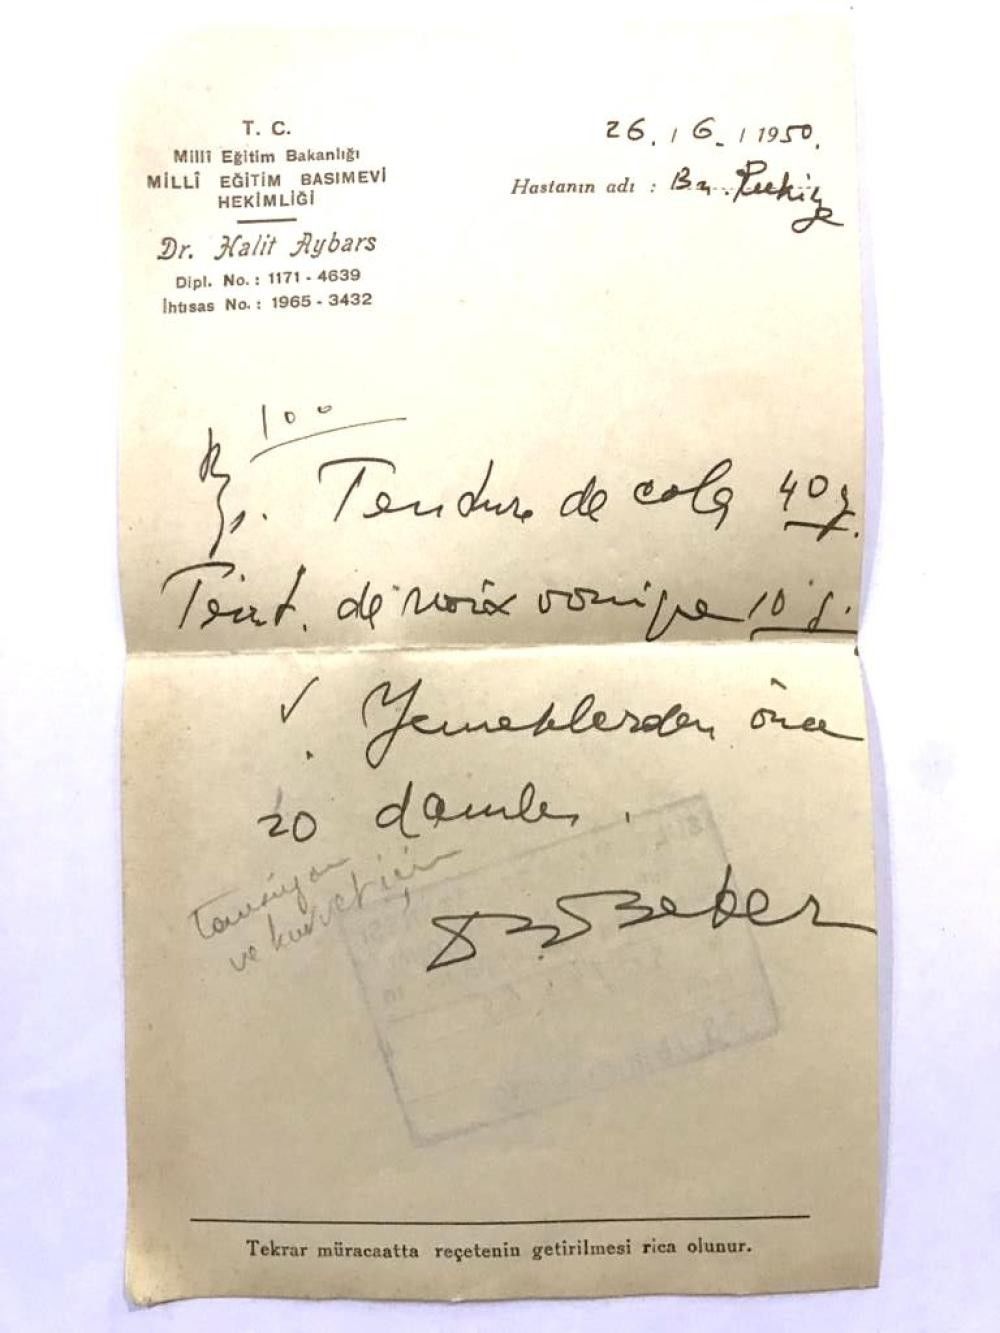 T. C.
Millî Eğitim Bakanlığı
MİLLÎ EĞİTİM BASIMEVİ
HEKİMLİĞİ
Dr. Halit Aybars
Dipl. No. : 1171 - 4639
İhtısas No. : 1965 - 3432
26. / 6. / 1950.
Hastanın adı : Bn.
100
Teinture de cola 40 g.
Teint. de noix vomique 10 g.
Yemeklerden önce
20 damla.
Tansiyon
ve kuvvet için
Tekrar müracaatta reçetenin getirilmesi rica olunur.